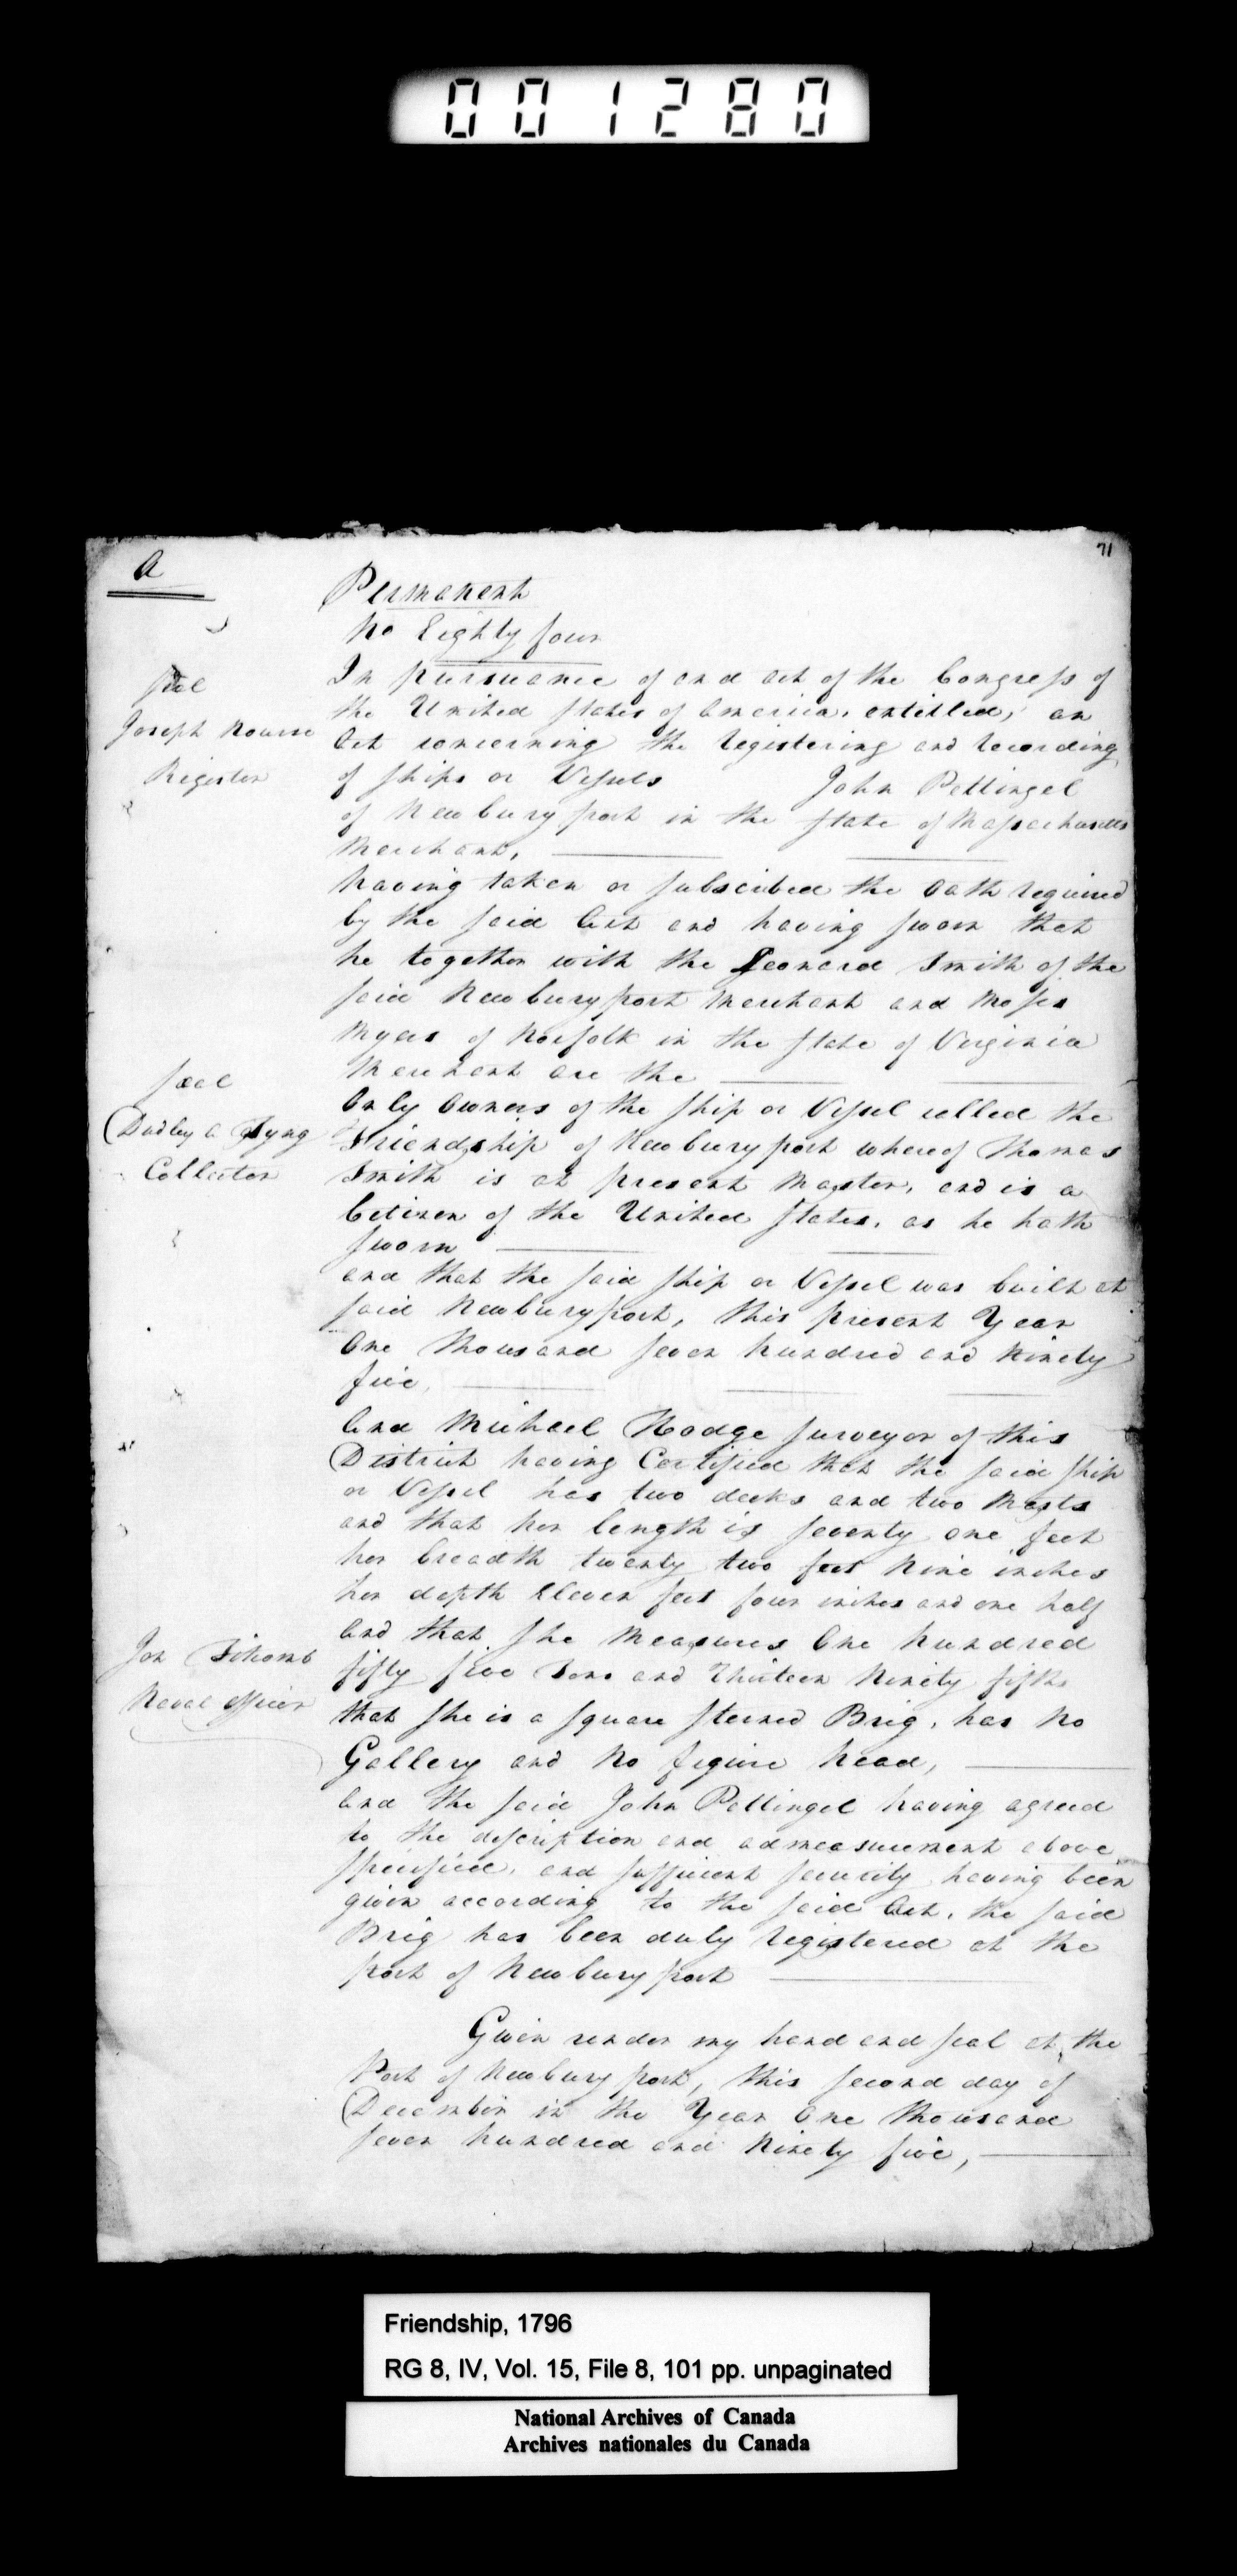 001280
71
A
Permanent
No Eighty four
In pursuance of and act of the Congress of
the United States of America, entitled, an
Act concerning the registering and recording
of ships or Vessels John Pettingel
of Newburyport in the State of Massachusetts
Merchant,
having taken or subscribed the Oath required
by the said Act and having sworn that
he together with the Leonard Smith of the
said Newburyport Merchant and Moses
Myers of Norfolk in the State of Virginia
Merchant are the
Only Owners of the ship or Vessel called the
Friendship of Newburyport whereof Thomas
Smith is at present Master, and is a
Citizen of the United States, as he hath
sworn
and that the said ship or Vessel was built at
said Newburyport, this present Year
One thousand seven hundred and Ninety
five,
And Michael Hodge surveyor of this
District having Certified that the said ship
or Vessel has two decks and two Masts
and that her length is seventy one feet
her breadth twenty two feet Nine inches
her depth Eleven feet four inches and one half
And that she Measures One hundred
fifty five Tons and Thirteen Ninety fifths
that she is a square sterned Brig, has No
Gallery and No figure head,
And the said John Pettingel having agreed
to the description and admeasurement above
specified, and sufficient security having been
given according to the said Act, the said
Brig has been duly registered at the
port of Newburyport
Given under my hand and seal at the
Port of Newburyport, this second day of
December in the Year One thousand
seven hundred and Ninety five,
seal
Joseph Nourse
Register
seal
Dudley A Tyng
Collector
Jon Titcomb
Naval officer
Friendship, 1796
RG 8, IV, Vol. 15, File 8, 101 pp. unpaginated
National Archives of Canada
Archives nationales du Canada